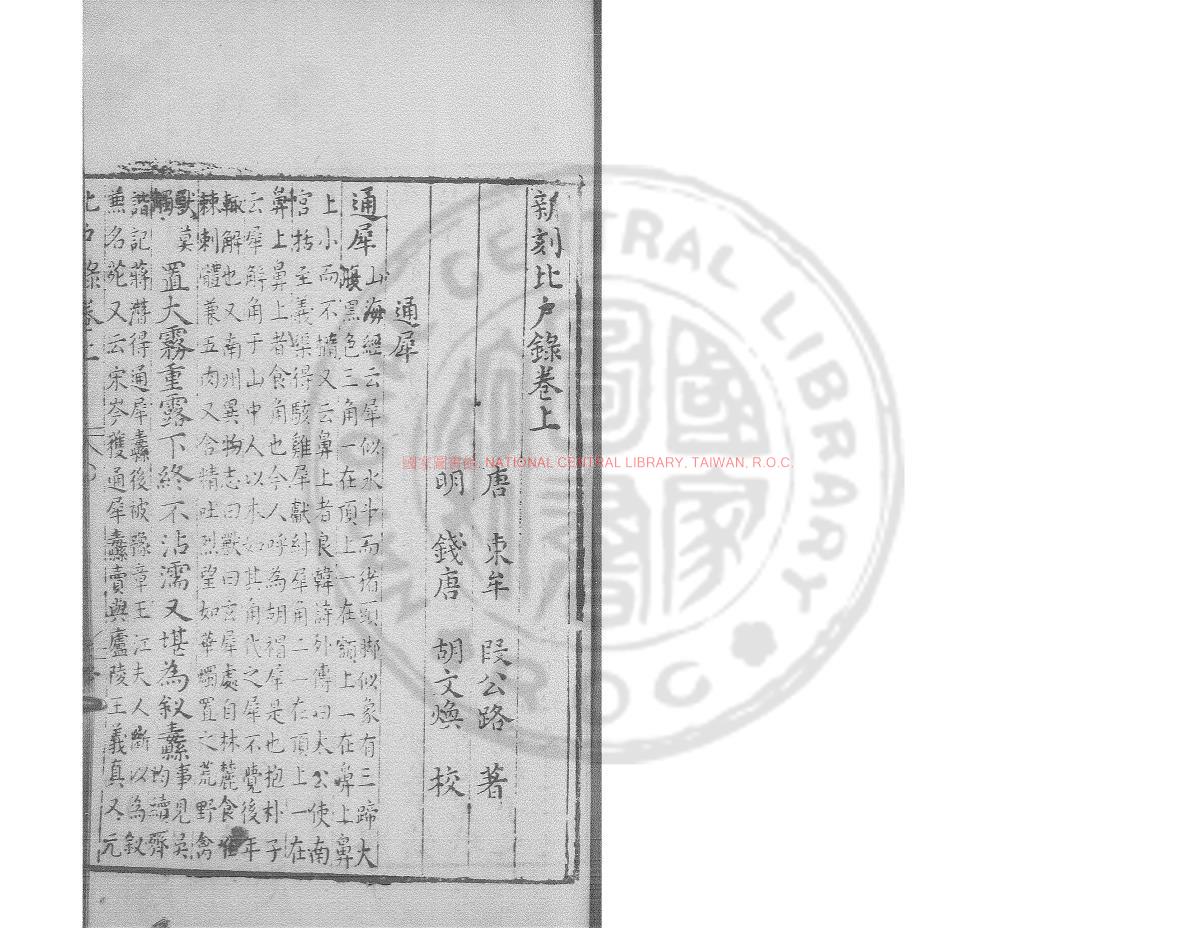 新刻北户錄卷上
唐 東牟 段公路 著
明 錢唐 胡文煥 校
通犀
通犀山海經云犀似水牛而猪頭脚似象有三蹄大
腹黑色三角一在頂上一在額上一在鼻上鼻
上小而不橢又云鼻上者食角也今人呼為胡帽犀是也抱朴子
宮括至義渠得駭雞犀獻紂犀角二一在頂上一在
鼻上鼻上者良韓詩外傳曰太公使南
云犀解角于山中人以木如其角代之犀不覺後年
輒解也又南州異物志曰獸曰玄犀處自林麓食
棘刺體兼五肉又含精吐烈望如華燭置之荒野禽
獸莫觸置大霧重露下終不沾濡又堪為釵蠧事見吳均續齊
諧記蔣潛得通犀蠧後被豫章王江夫人斷以為釵
兼名苑又云宋岑獲通犀蠧賣與廬陵王義真又元
北户錄卷上
國家圖書館, NATIONAL CENTRAL LIBRARY, TAIWAN, R.O.C.
NATIONAL CENTRAL LIBRARY
R.O.C.